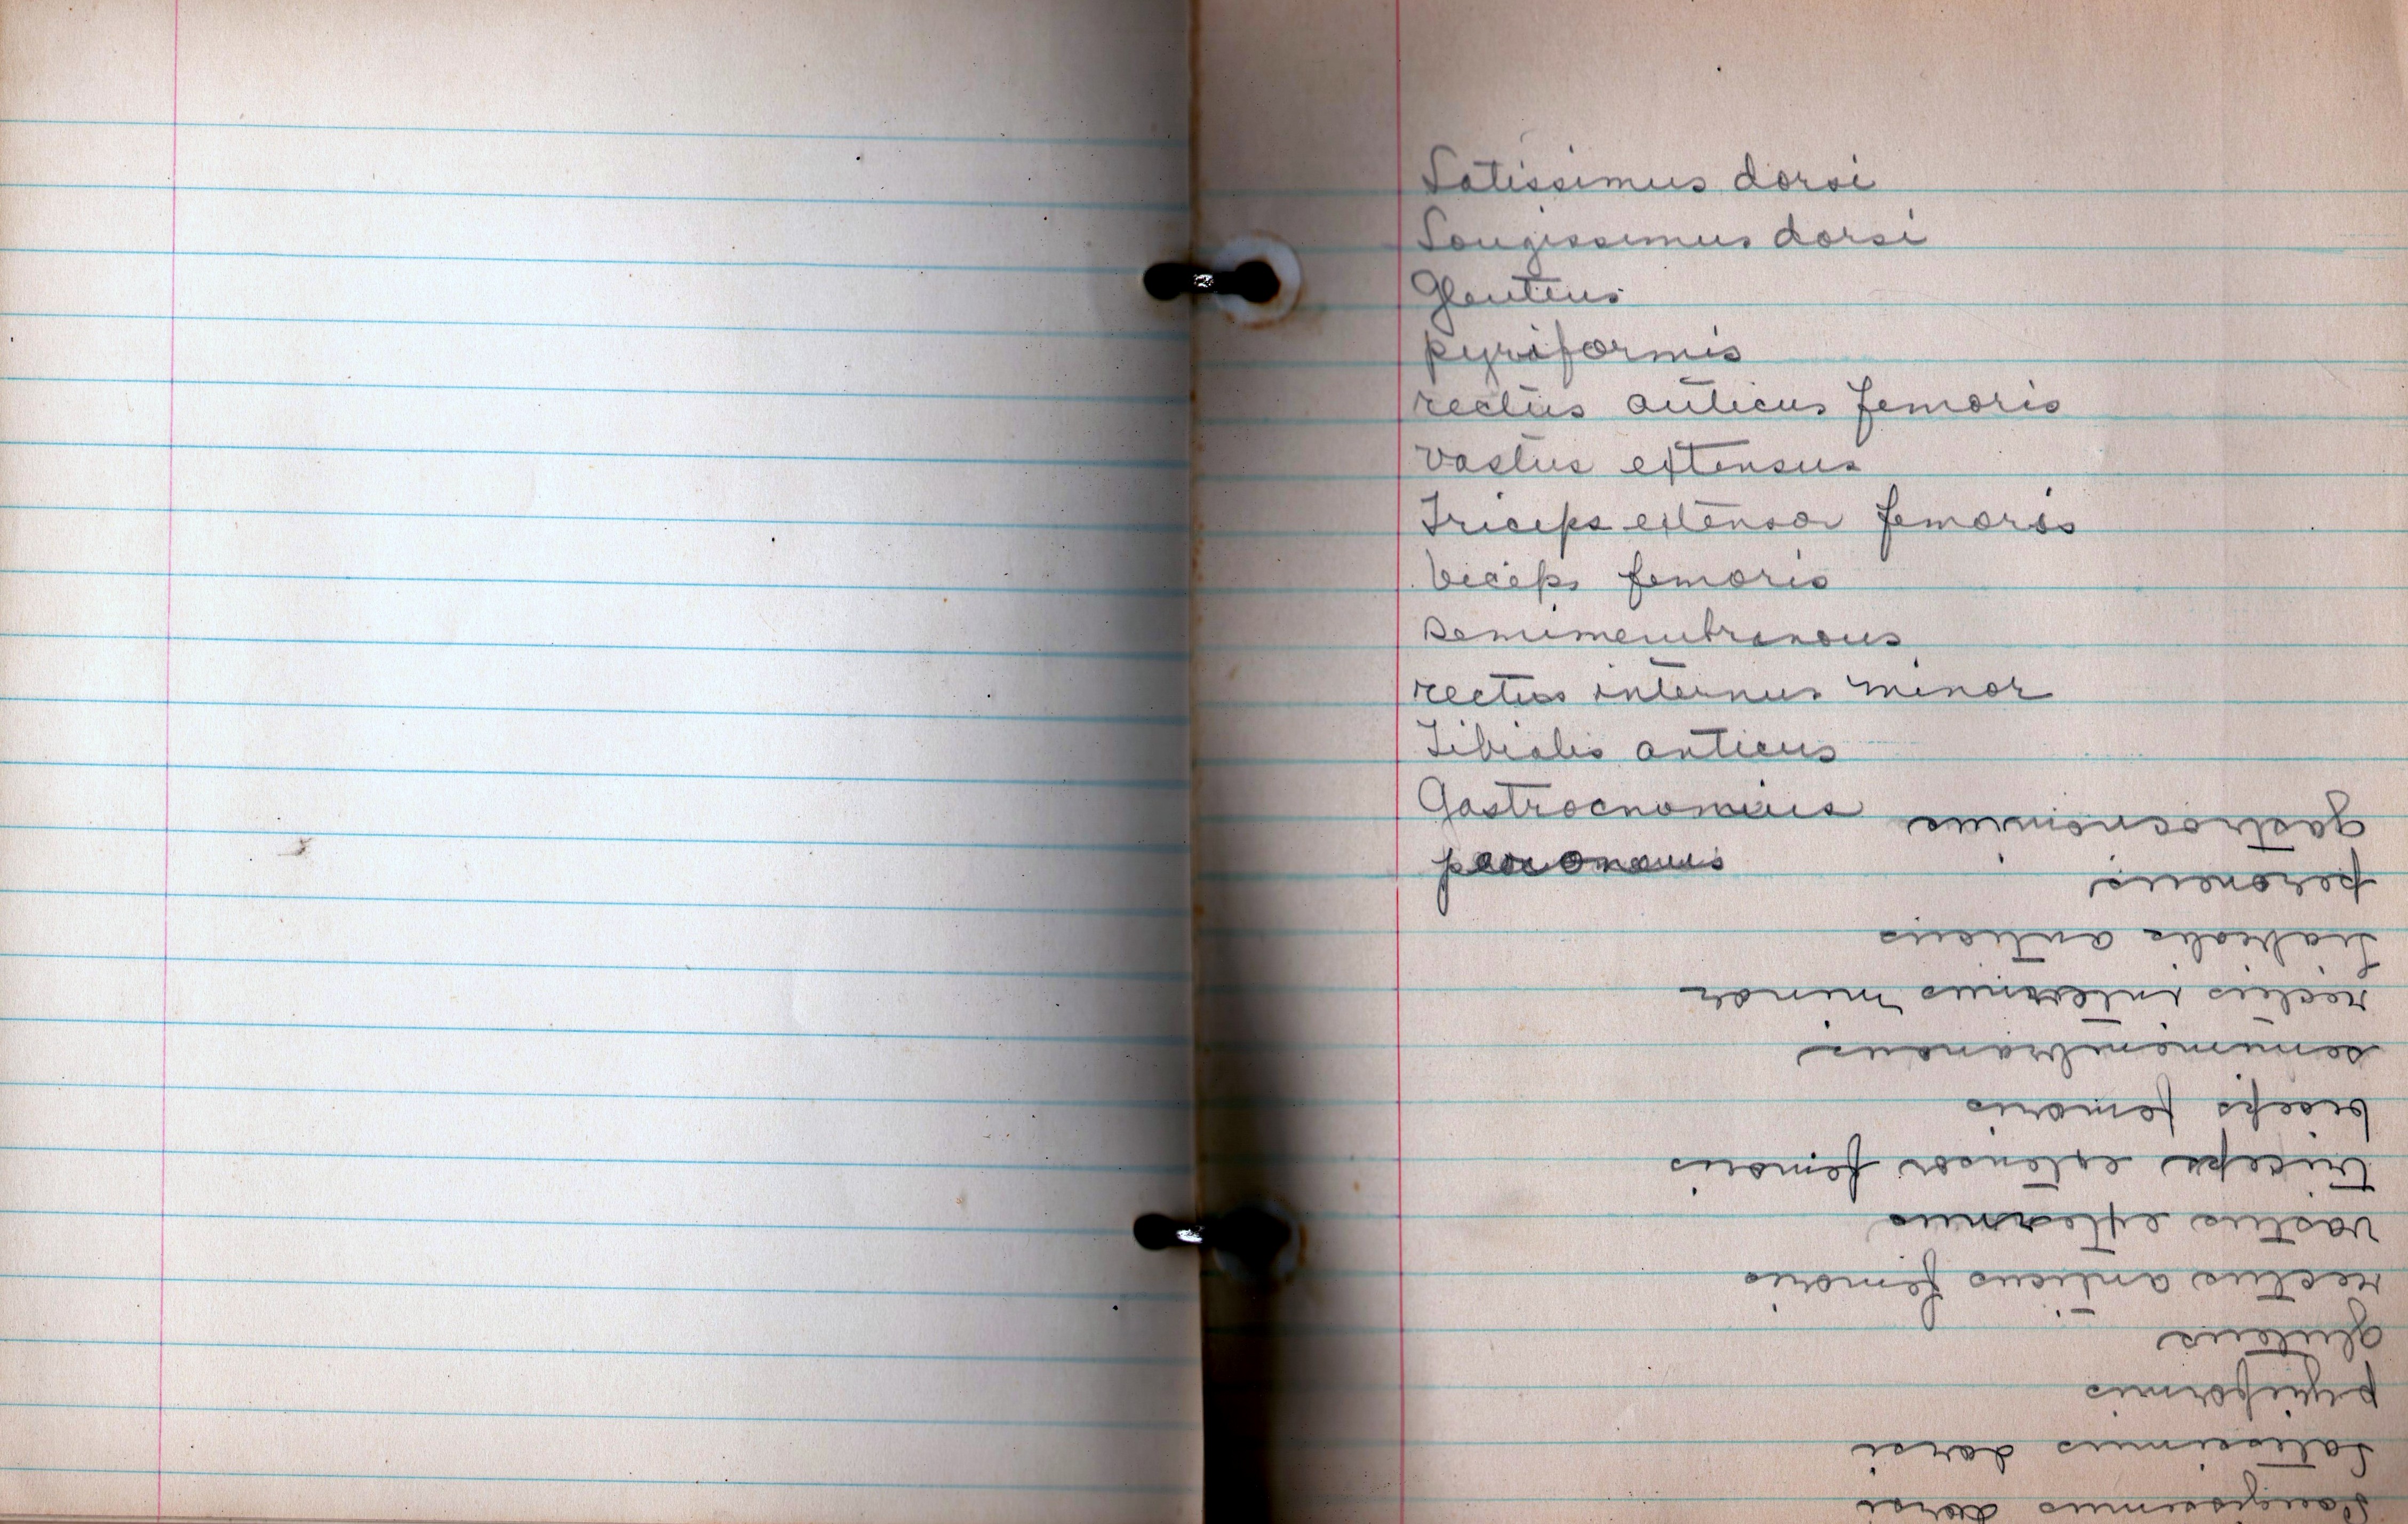 Latissimus dorsi
Longissimus dorsi
Gleuteus
pyriformis
rectus anticus femoris
vastus extensus
Triceps extensor femoris
biceps femoris
semimembranous
rectus internus minor
Tibialis anticus
Gastrocnomius
Longissimus dorsi
Latissimus dorsi
pyriformis
gluteus
rectus anticus femoris
vastus externus
triceps extensor femoris
biceps femoris
semimembranous
rectus internus minor
tiabialis anticus
peroneus
gastrocnomius